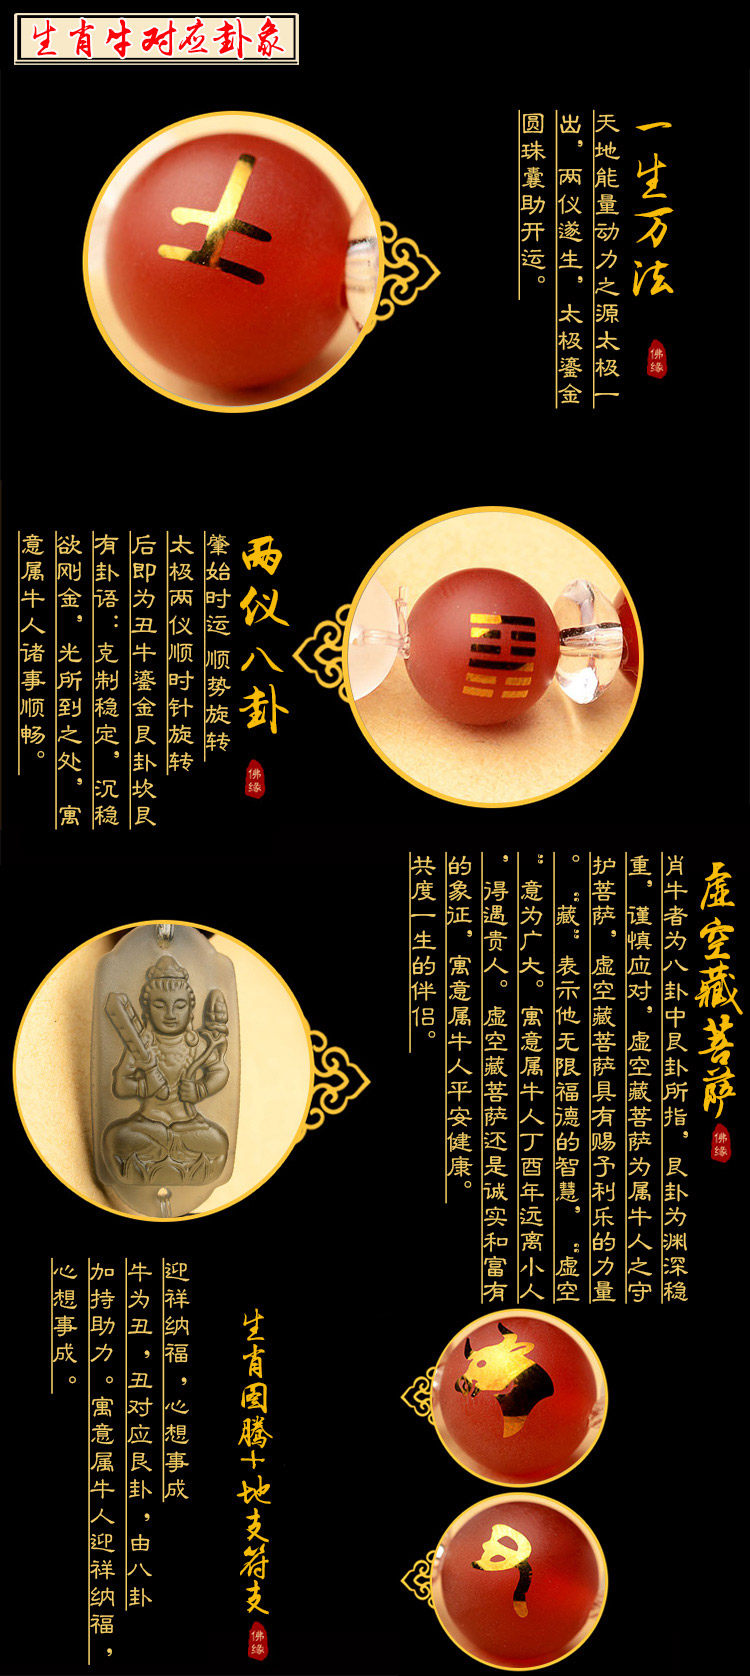 生肖牛对应卦象
一生万法
天地能量动力之源太极一
出，两仪遂生，太极鎏金
圆珠囊助开运。
佛缘
土
两仪八卦
肇始时运 顺势旋转
太极两仪顺时针旋转
后即为丑牛鎏金艮卦坎艮
有卦语：克制稳定，沉稳
欲刚金，光所到之处，寓
意属牛人诸事顺畅。
佛缘
虚空藏菩萨
肖牛者为八卦中艮卦所指，艮卦为渊深稳
重，谨慎应对，虚空藏菩萨为属牛人之守
护菩萨，虚空藏菩萨具有赐予利乐的力量
。“藏”表示他无限福德的智慧，“虚空
”意为广大。寓意属牛人丁酉年远离小人
，得遇贵人。虚空藏菩萨还是诚实和富有
的象征，寓意属牛人平安健康。
共度一生的伴侣。
佛缘
生肖图腾+地支符支
迎祥纳福，心想事成
牛为丑，丑对应艮卦，由八卦
加持助力。寓意属牛人迎祥纳福，
心想事成。
佛缘